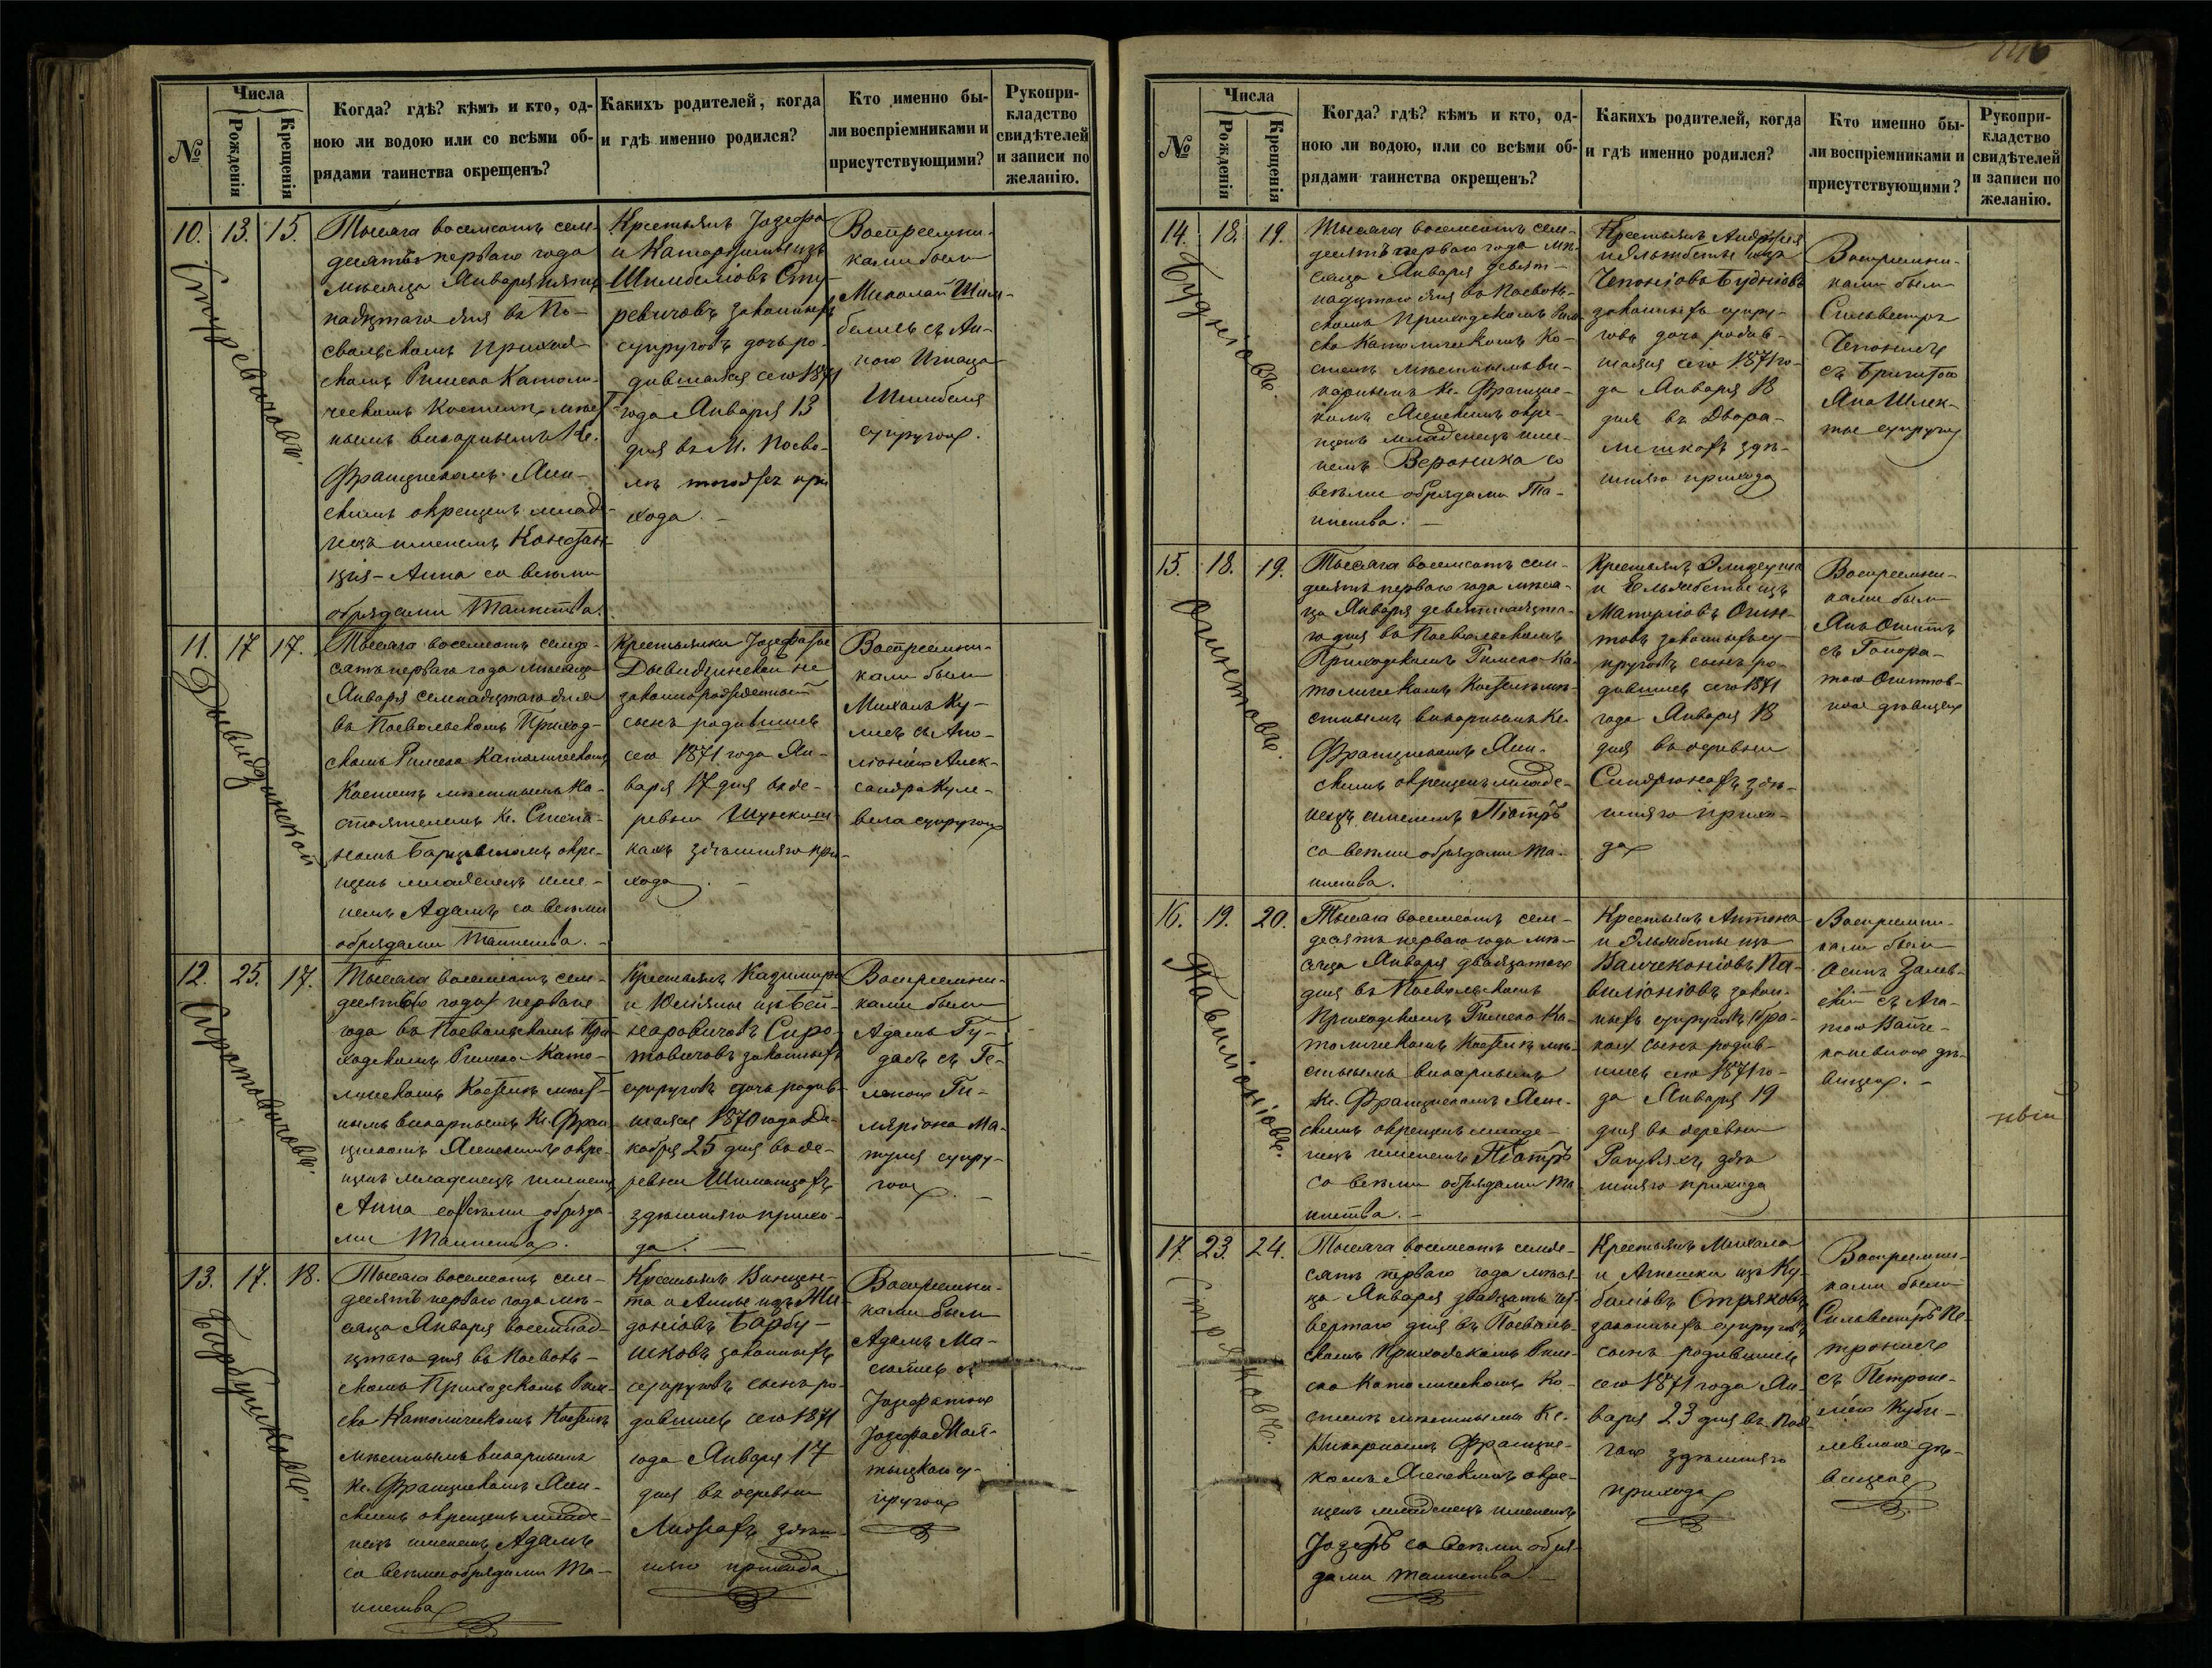 146
№
Числа
Рожденія
Крещенія
Когда? гдѣ? кѣмъ и кто, од-
ною ли водою или со всѣми об-
рядами таинства окрещенъ?
Какихъ родителей, когда
и гдѣ именно родился?
Кто именно бы-
ли воспріемниками и
присутствующими?
Рукопри-
кладство
свидѣтелей
и записи по
желанію.
10. 13. 15.
Тысяча восемсотъ сем-
десятъ перваго года
мѣсяца Января пят
надцтаго дня въ По-
свольскомъ Приход-
скомъ Римско Католи-
ческомъ Костелѣ мѣст
нымъ викарнымъ Кс.
Францискомъ Ясин-
скимъ окрещенъ млад
нецъ именемъ Констан
ція-Анна со всѣми
обрядами Таинства.
Крестьянъ Іозефа
и Катаржины изъ
Шимбелiовъ Сту-
ревичовъ законныхъ
супруговъ дочь ро-
дившаяся сего 1871
года Января 13
дня въ М. Посво-
лѣ тогожъ при
хода. –
Воспреемни-
ками были
Миколай Шим-
белисъ съ Ан-
ною Игнаца
Шимбеля
супругою.
11. 17 17.
Тысяча восемсотъ семд-
сятъ перваго года мѣсяца
Января семнадцтаго дня
въ Посвольскомъ Приход-
скомъ Римско Католическомъ
Костелѣ мѣстнымъ На-
стоятелемъ Кс. Степа-
номъ окре-
щенъ младенецъ име-
немъ Адамъ со всѣми
обрядами Таинства. –
Крестьянки Іозефаты
незаконнорожденный
сынъ родившійся
сего 1871 года Ян-
варя 17 дня въ де-
ревни
кахъ здѣшняго при-
хода. –
Воспреемни-
ками были
Михалъ Ку-
лисъ съ Апо-
лоніею Алек-
сандра Куле-
веля супругою
12. 25. 17.
Тысяча восемсотъ сем-
десятъ года перваго
года въ Посвольскомъ При
ходскомъ Римско-Като-
лическомъ Костелѣ мѣст-
нымъ викарнымъ Кс. Фран-
цискомъ Ясинскимъ окре-
щенъ младенецъ именемъ
Анна со всѣми обряда-
ми Таинства.
Крестьянъ Казимира
и Юліяны изъ Бей-
наровичовъ Сиро-
товичовъ законныхъ
супруговъ дочь родив-
шаяся 1870 года Де-
кабря 25 дня въ де-
ревни Шиманцахъ
здѣшняго прихо-
да. –
Воспреемни-
ками были
Адамъ Гу-
дасъ съ Ге-
леною Ги-
ляріона Ма-
туля супру-
гою. –
13. 17. 18.
Тысяча восемсотъ сем-
десятъ перваго года мѣ-
сяца Января восемнад-
цтаго дня въ Посволь-
скомъ Приходскомъ Рим-
ско Католическомъ Костелѣ
мѣстнымъ викарнымъ
Кс. Францискомъ Ясин-
скимъ окрещенъ младе-
нецъ именемъ Адамъ
со всѣми обрядами Та-
инства
Крестьянъ Винцен-
та и Анны изъ Жи-
доніовъ Барбу-
шковъ законныхъ
супруговъ сынъ ро-
дившійся сего 1871
года Января 17
дня въ деревни
здѣш-
няго прихода
Воспреемни-
ками были
Адамъ Ма-
съ
Іозефатою
Іозефа
су-
пругою
№
Числа
Рожденія
Крещенія
Когда? гдѣ? кѣмъ и кто, од-
ною ли водою, или со всѣми об-
рядами таинства окрещенъ?
Какихъ родителей, когда
и гдѣ именно родился?
Кто именно бы-
ли воспріемниками и
присутствующими?
Рукопри-
кладство
свидѣтелей
и записи по
желанію.
14. 18. 19.
Тысяча восемсотъ сем-
десятъ перваго года мѣ-
сяца Января девят-
надцтаго дня въ Посволь-
скомъ Приходскомъ Рим-
ско Католическомъ Ко-
стелѣ мѣстнымъ ви-
карнымъ Кс. Францис-
комъ Ясинскимъ окре-
щенъ младенецъ име-
немъ Вероника со
всѣми обрядами Та-
инства. –
Крестьянъ Андржея
и Эльжбеты изъ
Чепоніовъ Будніовъ
законныхъ супру-
говъ дочь родив-
шаяся сего 1871 го-
да Января 18
дня въ Двора-
лишкахъ здѣ-
шняго прихода
Воспреемни-
ками были
Сильвестръ
Чепонисъ
съ Бригитою
Яна Шлек-
ты супругою
15. 18. 19.
Тысяча восемсотъ сем-
десятъ перваго года мѣся-
ца Января девятнадцта-
го дня въ Посвольскомъ
Приходскомъ Римско-Ка-
толическомъ Костелѣ мѣ-
стнымъ викарнымъ Кс.
Францискомъ Ясин-
скимъ окрещенъ младе-
нецъ именемъ Піотръ
со всѣми обрядами Та-
инства.
Крестьянъ Элизеуша
и Ельжбеты изъ
Матуліовъ Огин-
товъ законныхъ су-
пруговъ сынъ ро-
дившійся сего 1871
года Января 18
дня въ деревни
здѣ-
шняго прихо-
да
Воспреемни-
ками были
Янъ Огинтъ
съ Гонора-
тою Огинтов-
ною дѣвицею
16. 19. 20.
Тысяча восемсотъ сем-
десятъ перваго года мѣ-
сяца Января двадцатаго
дня въ Посвольскомъ
Приходскомъ Римско Ка-
толическомъ Костелѣ мѣ-
стнымъ викарнымъ
Кс. Францискомъ Ясин-
скимъ окрещенъ младе-
нецъ именемъ Піотръ
со всѣми обрядами Та
инства. –
Крестьянъ Антона
и Эльжбеты изъ
Ванчеконіовъ Па-
вилоніовъ закон-
ныхъ супруговъ
сынъ родив-
шійся сего 1871 го-
да Января 19
дня въ деревни
здѣ
шняго прихода
Воспреемни-
ками были
Осипъ Залев-
скій съ Ага-
тою
дѣ-
вицею. –
ный
17. 23. 24.
Тысяча восемсотъ семде-
сятъ перваго года мѣся-
ца Января двадцать чет-
вертаго дня въ Посволь-
скомъ Приходскомъ Рим-
ско Католическомъ Ко-
стелѣ мѣстнымъ Кс.
Викарнымъ Францис-
комъ Ясинскимъ окре-
щенъ младенецъ именемъ
Іозефъ со всѣми обря-
дами Таинства. –
Крестьянъ Михала
и Агнешки изъ Ку-
биліовъ Стряковъ
законныхъ супруговъ
сынъ родившійся
сего 1871 года Ян-
варя 23 дня въ
здѣшняго
прихода
Воспреемни-
ками были
Сильвестръ Пе-
тронисъ
съ Петроне-
лею Куби-
левною дѣ-
вицею